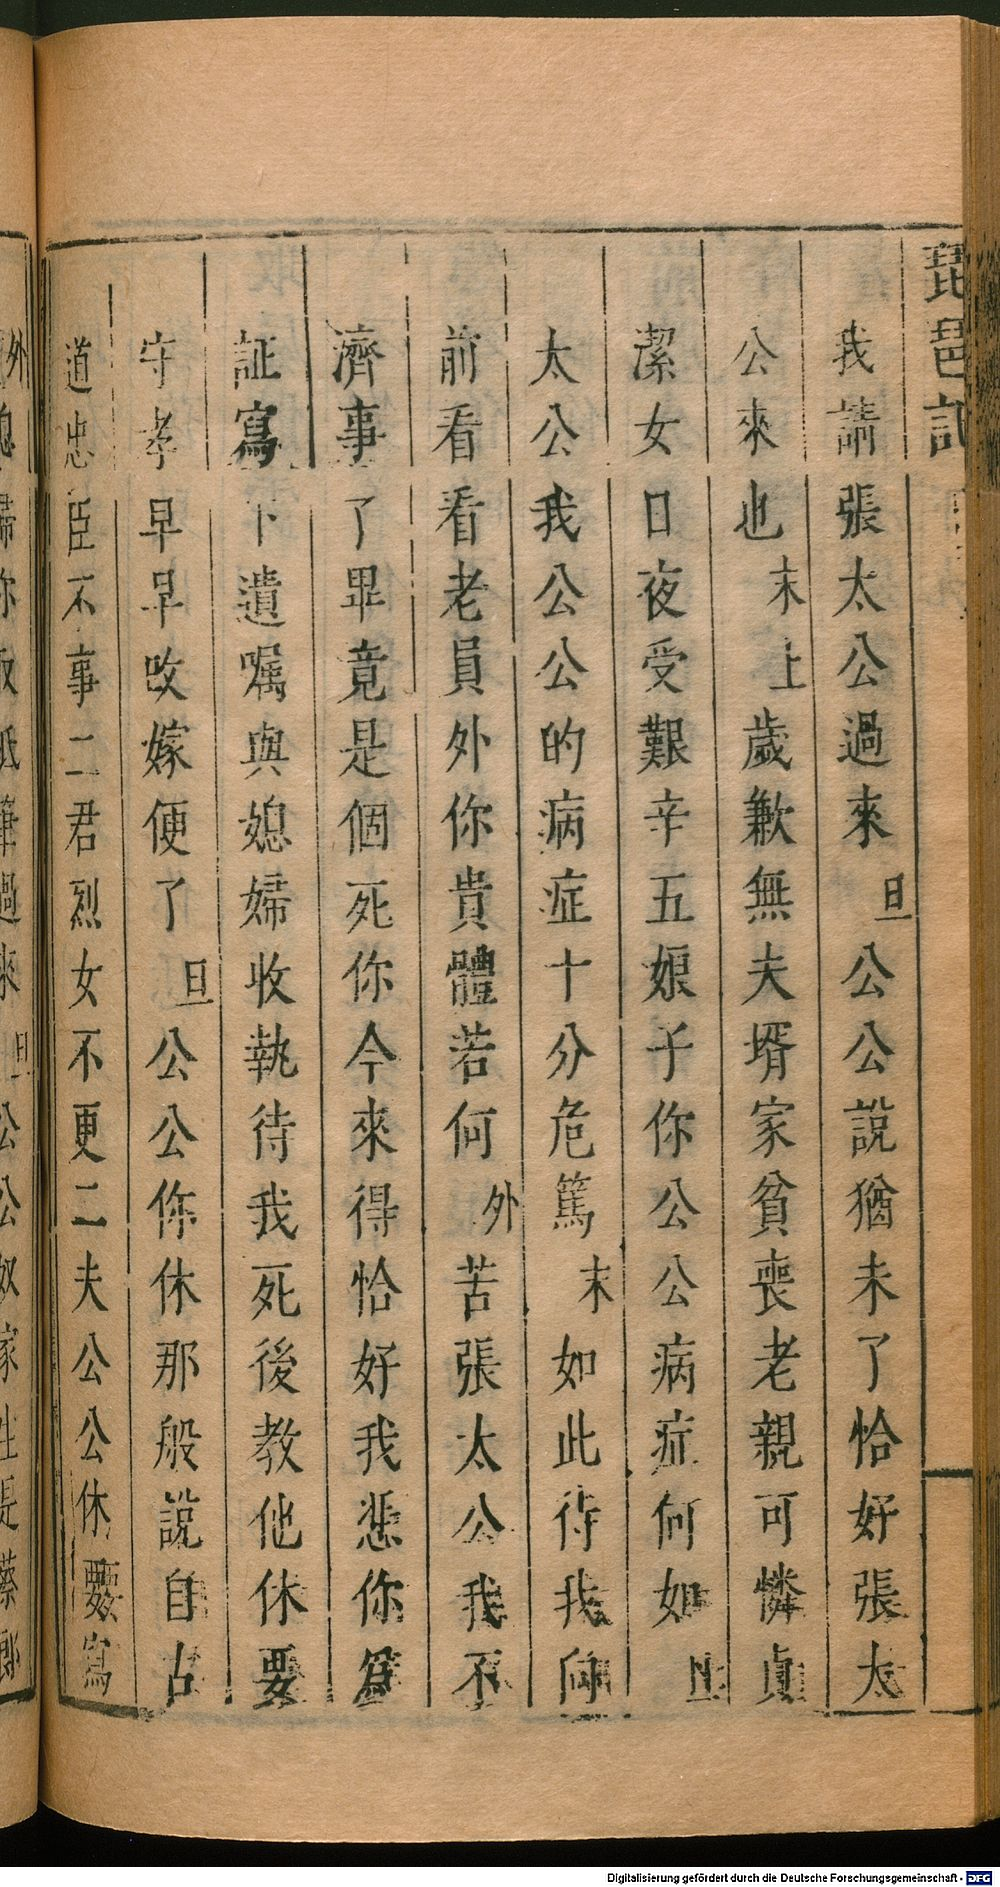 琵琶記
我請張太公過來旦公公說猶未了恰好張太
公來也末上歲歉無夫壻家貧喪老親可憐貞
潔女日夜受艱辛五娘子你公公病症何如旦
太公我公公的病症十分危篤末如此待我向
前看看老員外你貴體若何外苦張太公我不
濟事了畢竟是個死你今來得恰好我恁你爲
証寫下遺嘱與媳婦收執待我死後教他休要
守孝早早改嫁便了旦公公你休那般說自古
道忠臣不事二君烈女不更二夫公公休要寫
外媳婦你取紙筆過來旦公公奴家生是蔡郎
Digitalisierung gefördert durch die Deutsche Forschungsgemeinschaft - DFG